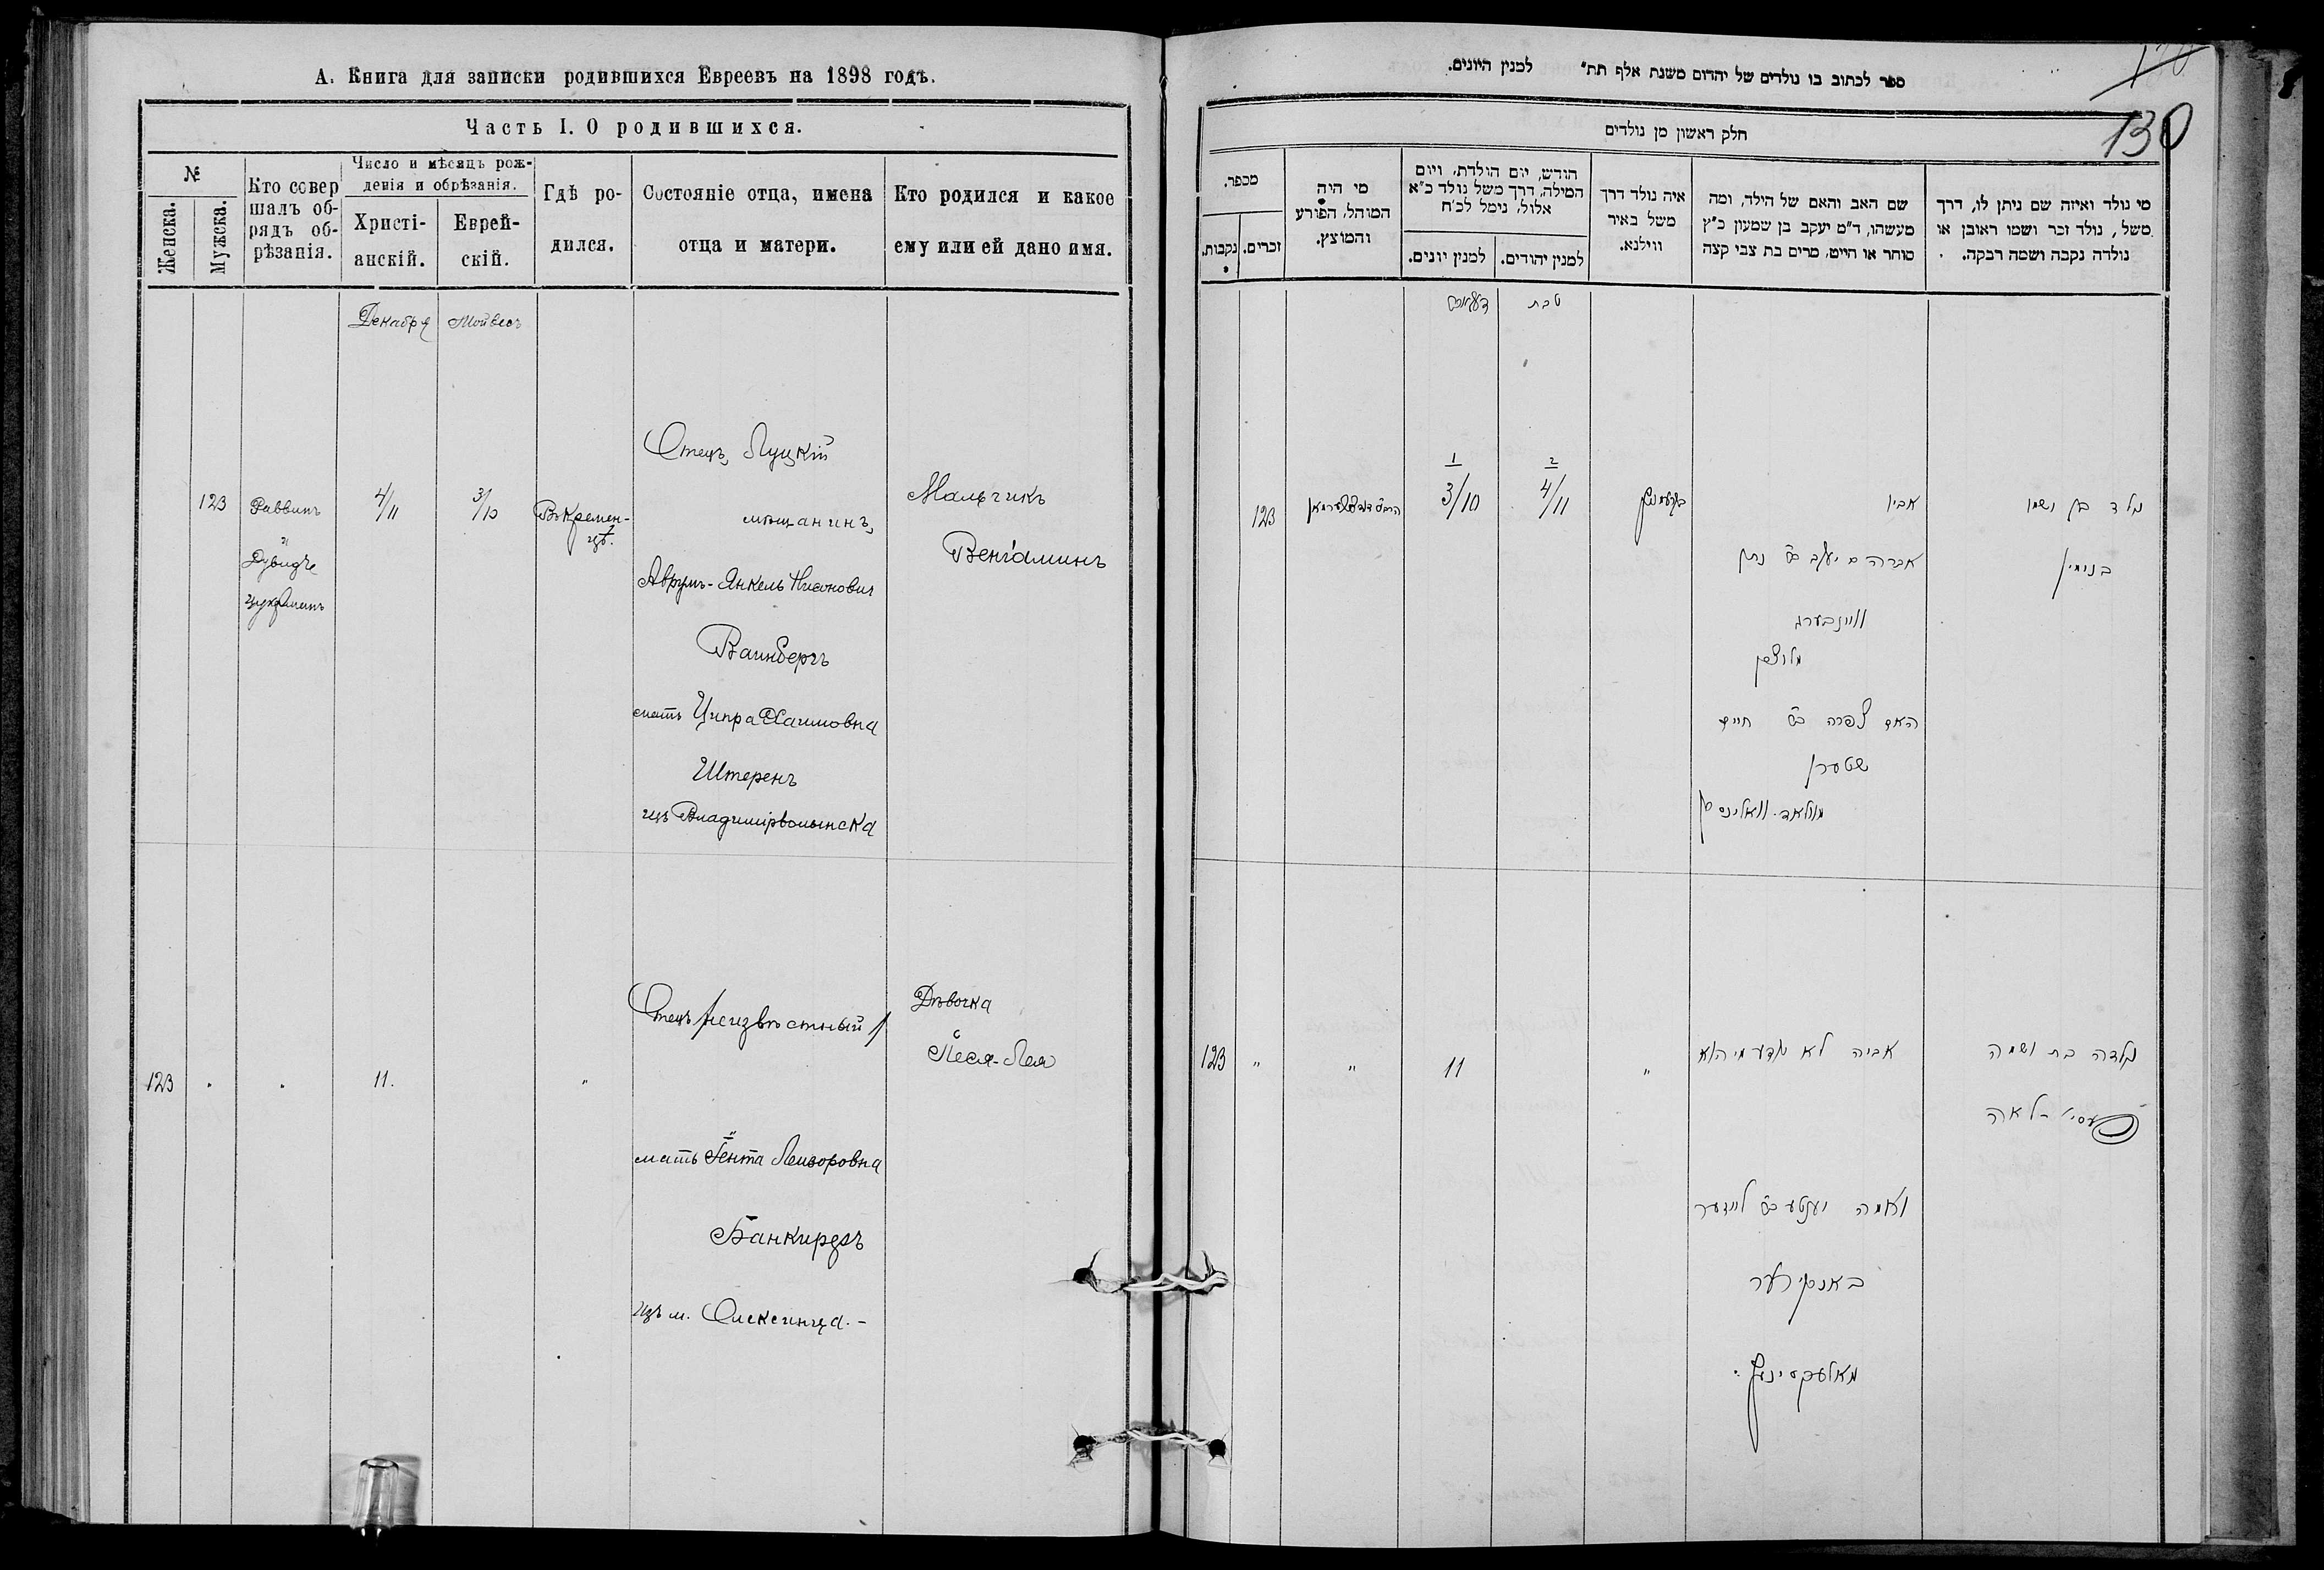 А. Книга для записки родившихся Евреевъ на 1898 годъ.
Часть I. О родившихся.
№
Женска.
Мужска.
Кто совер
шалъ об-
рядъ об-
рѣзанія.
Число и мѣсяцъ рож-
денія и обрѣзанія.
Христі-
анскій.
Еврей-
скій.
Гдѣ ро-
дился.
Состояніе отца, имена
отца и матери.
Кто родился и какое
ему или ей дано имя.
Декабря
123
Раввинъ
и
4/11
3/10
Въ Кремен-
цѣ.
Отецъ, Луцкій
мѣщанинъ,
Аврумъ-Янкель
Вайнбергъ
мать Ципра Хаимовна
Штеренъ
изъ Владимірволынска
Мальчикъ
Веніаминъ
123
11.
"
Отецъ неизвѣстный
мать Іента Лейзоровна
изъ м. Олексинца.-
Дѣвочка
Песя-Лея
ספר לכתוב בו נולדים של יהדום משנת אלף תת״ למנין היונים.
130
חלק ראשון מן נולדים
מספר.
נקבות.
זכרים.
מי היה
המוהל, הפורע
והמוצץ.
חודש, יום הולדת, ויום
המילה, דרך משל נולד כ״א
אלול, נימל לכ׳ח
למנין יונים.
למנין יהודים.
איה נולד דרך
משל באיר
ווילנא.
שם האב והאם של הילד, ומה
מעשהו, ד״מ יעקב בן שמעון כ״ץ
סוחר או חייט, מרים בת צבי קצה
מי נולד ואיזה שם ניתן לו, דרך
משל, נולד זכר ושמו ראובן או
נולדה נקבה ושמה רבקה.
טבת
123
1
3/10
2
4/11
אביו
אברהם יעקב נתן
וויינבערג
האם צפרה חיים
שטערן
נולד בן ושמו
בנימין
123
"
"
11
"
אביה לא נודע מי הוא
ואמה יענטע
נולדה בת ושמה
פעסי-לאה